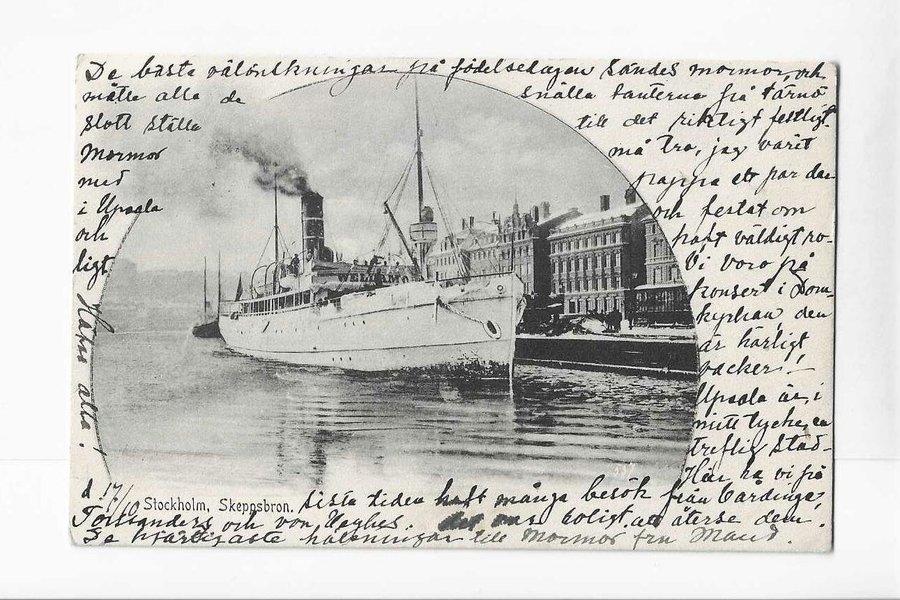 De bästa välönskningar på födelsedagen sändes mormor, och
måtte alla de snälla tanterna på Tärnö
slott ställa till det riktigt festligt.
Mormor må tro, jag varit
med pappa ett par dar
i Upsala och festat om
och haft väldigt ro-
ligt Vi voro på
konsert i Dom-
kyrkan den
är härligt
vacker!
Upsala är, i
mitt tycke, en
treflig stad-
Här ha vi på
sista tiden haft många besök från
och von det
alla.
WELLAMO
d 17/10 Stockholm, Skeppsbron.
De hjärtligaste hälsningar till Mormor från Maud.